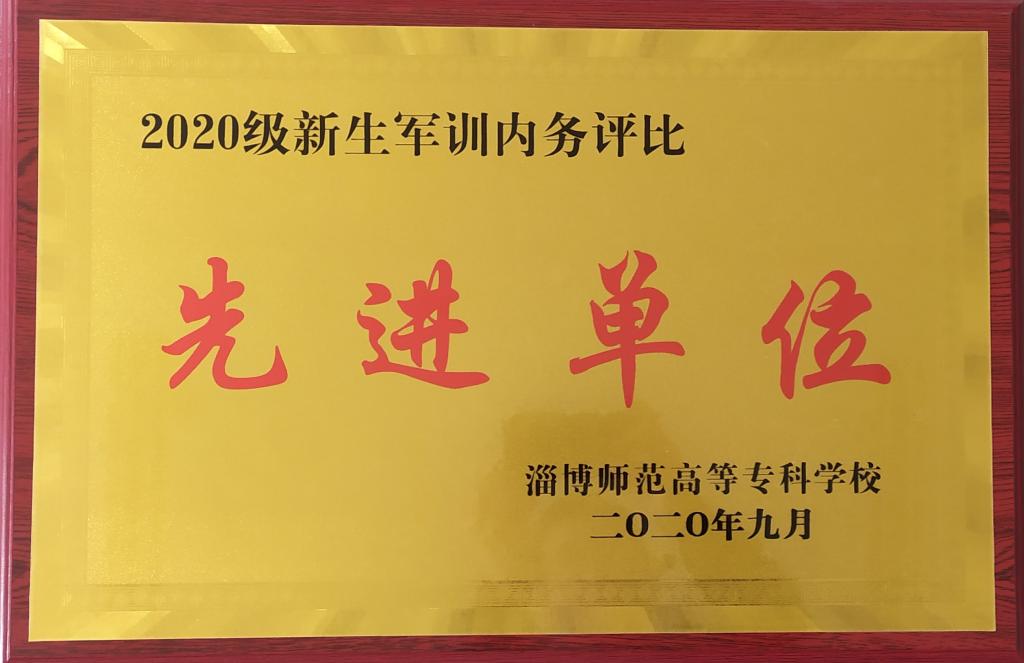 2020级新生军训内务评比
先进单位
淄博师范高等专科学校
二〇二〇年九月